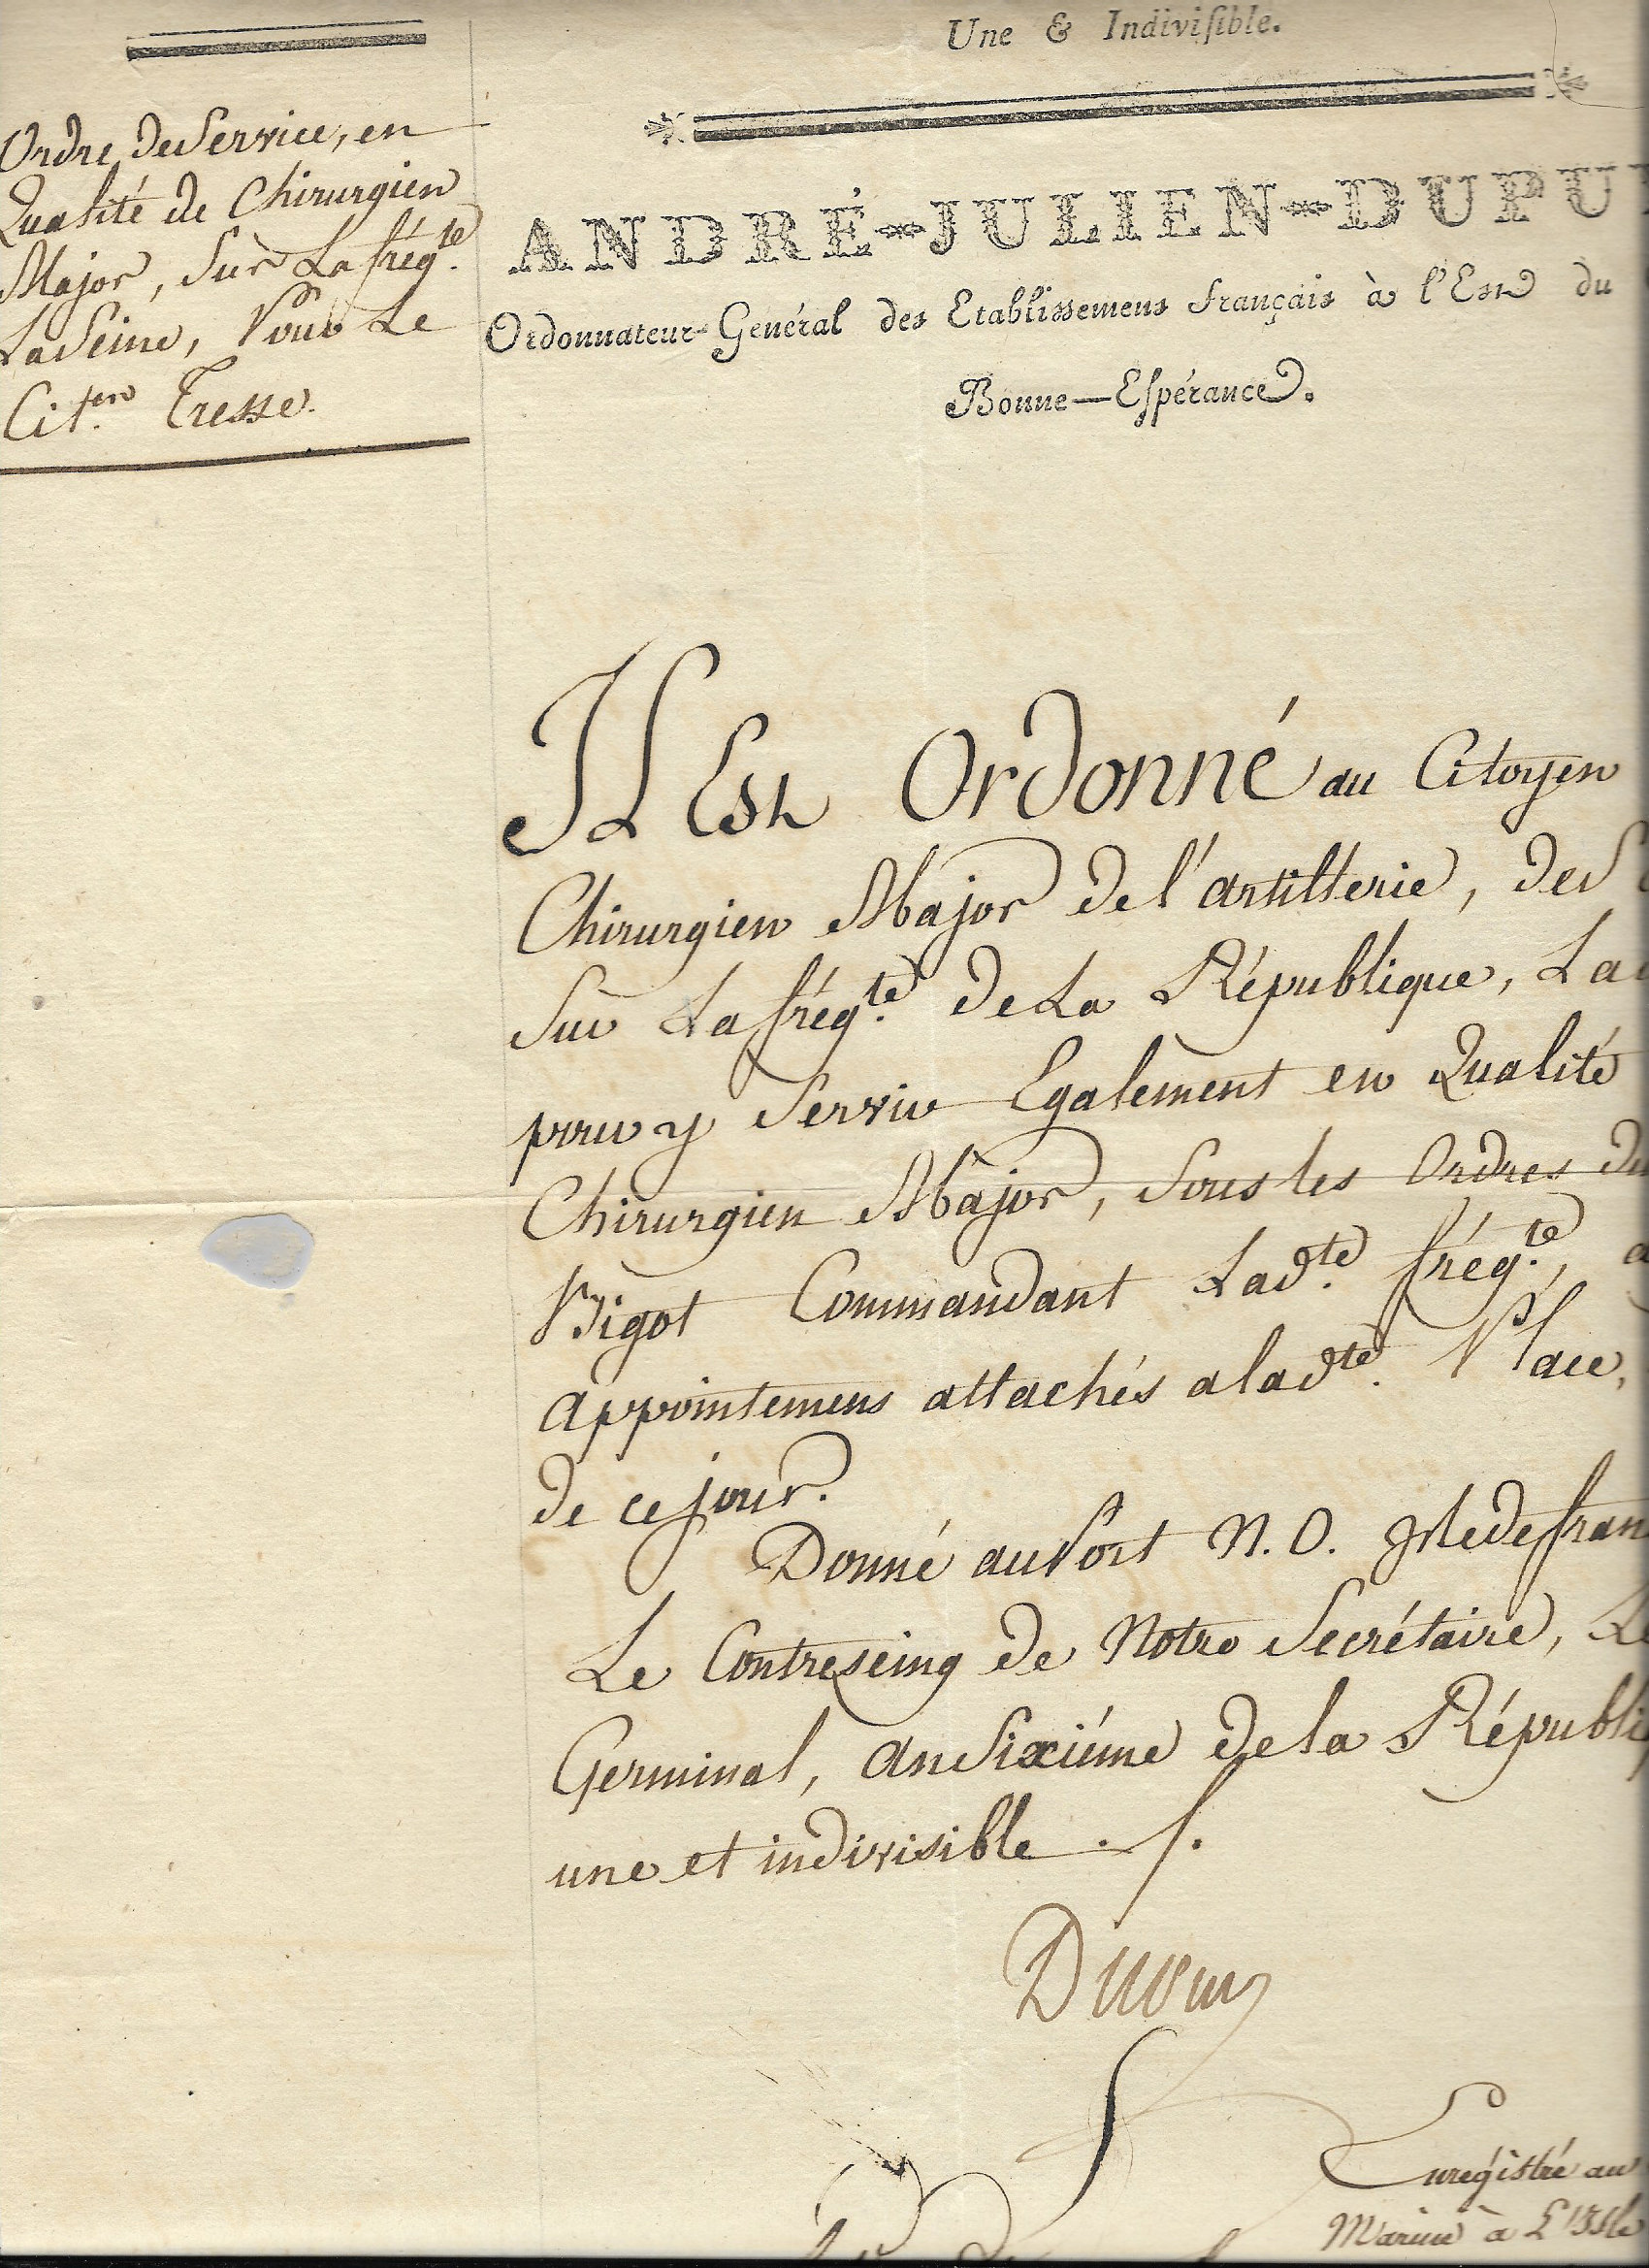 Une & Indiviſible.
Ordre de Service, en
Qualité de Chirurgien
Major, Sur La frég.te
La Seine, Pour Le
Cit.en Tresse.
ANDRÉ-JULIEN-DUPU
Ordonnateur-Genéral des Etablissemens Français à l'Est du
Bonne-Eſpérance.
Il Est Ordonné au Citoyen
Chirurgien Major de l'artillerie, de
Sur La frég.te de La République, La
pour y Servir Egalement en Qualité
Chirurgien Major, Sous les Ordres du
Bigot Commandant Lad.te frég.te,
appointemens attachés a lad.te Place,
de ce jour.
Donné au Port N. O. Isle de fran
Le Contreseing de Notre Secrétaire, Le
Germinal, an Sixiéme de la Républi
une et indivisible ./.
Dupuy
Enregistré au
Marine à L'Isle